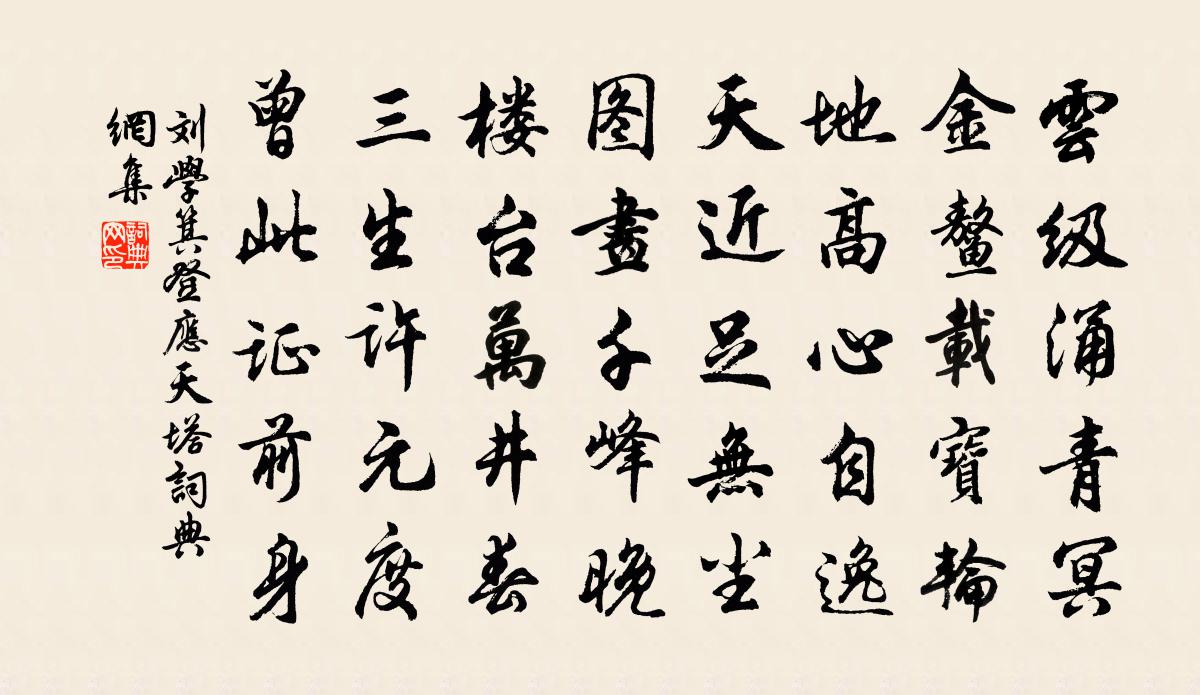 雲级涌青冥
金鳌載寶輪
地高心自逸
天近足無尘
图畫千峰晚
楼台萬井春
三生许元度
曾此证前身
刘學箕登應天塔詞典
網集
詞典
网印